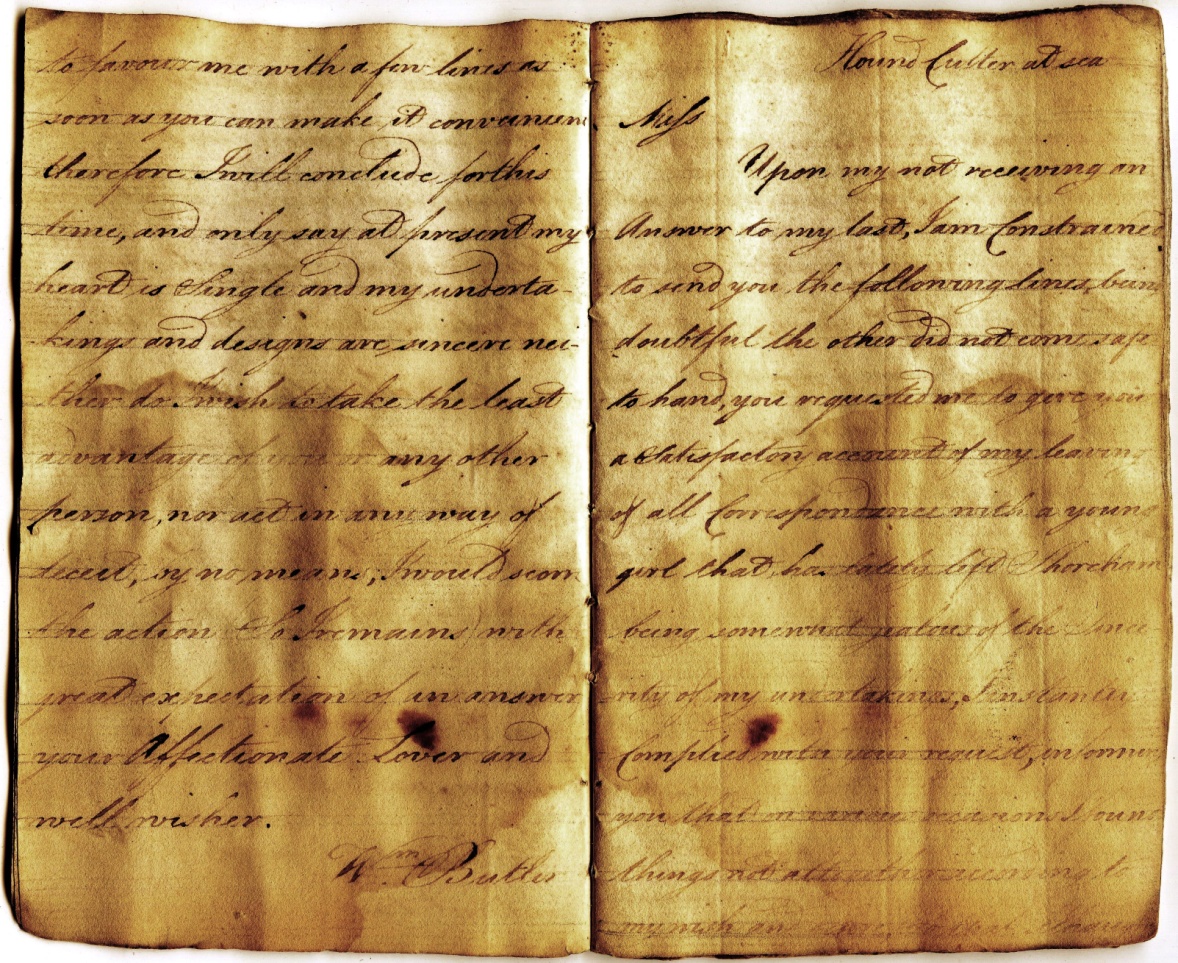 to favour me with a few lines as
soon as you can make it convenien
therefore I will conclude for this
time, and only say at present my
heart is Single and my underta-
kings and designs are sincere nei-
ther do I wish to take the least
advantage of you or any other
person, nor act in any way of
deceit, by no means, I would scorn
the action So I remains with
great expectation of an answer
your Affectionate Lover and
well wisher.
Wm Butler
Hound Cutter at sea
Miss
Upon my not receiving an
Answer to my last, I am Constrained
to send you the following lines, being
doubtful the other did not come safe
to hand, you requested me to give you
a Satisfactory account of my leaving
of all Correspondance with a young
girl that has lately left Shoreham
being somewhat jealous of the Since
rity of my undertakings, I instantly
Complied with your request, informing
you that on various occasions I found
things not altogether according to
my wish and